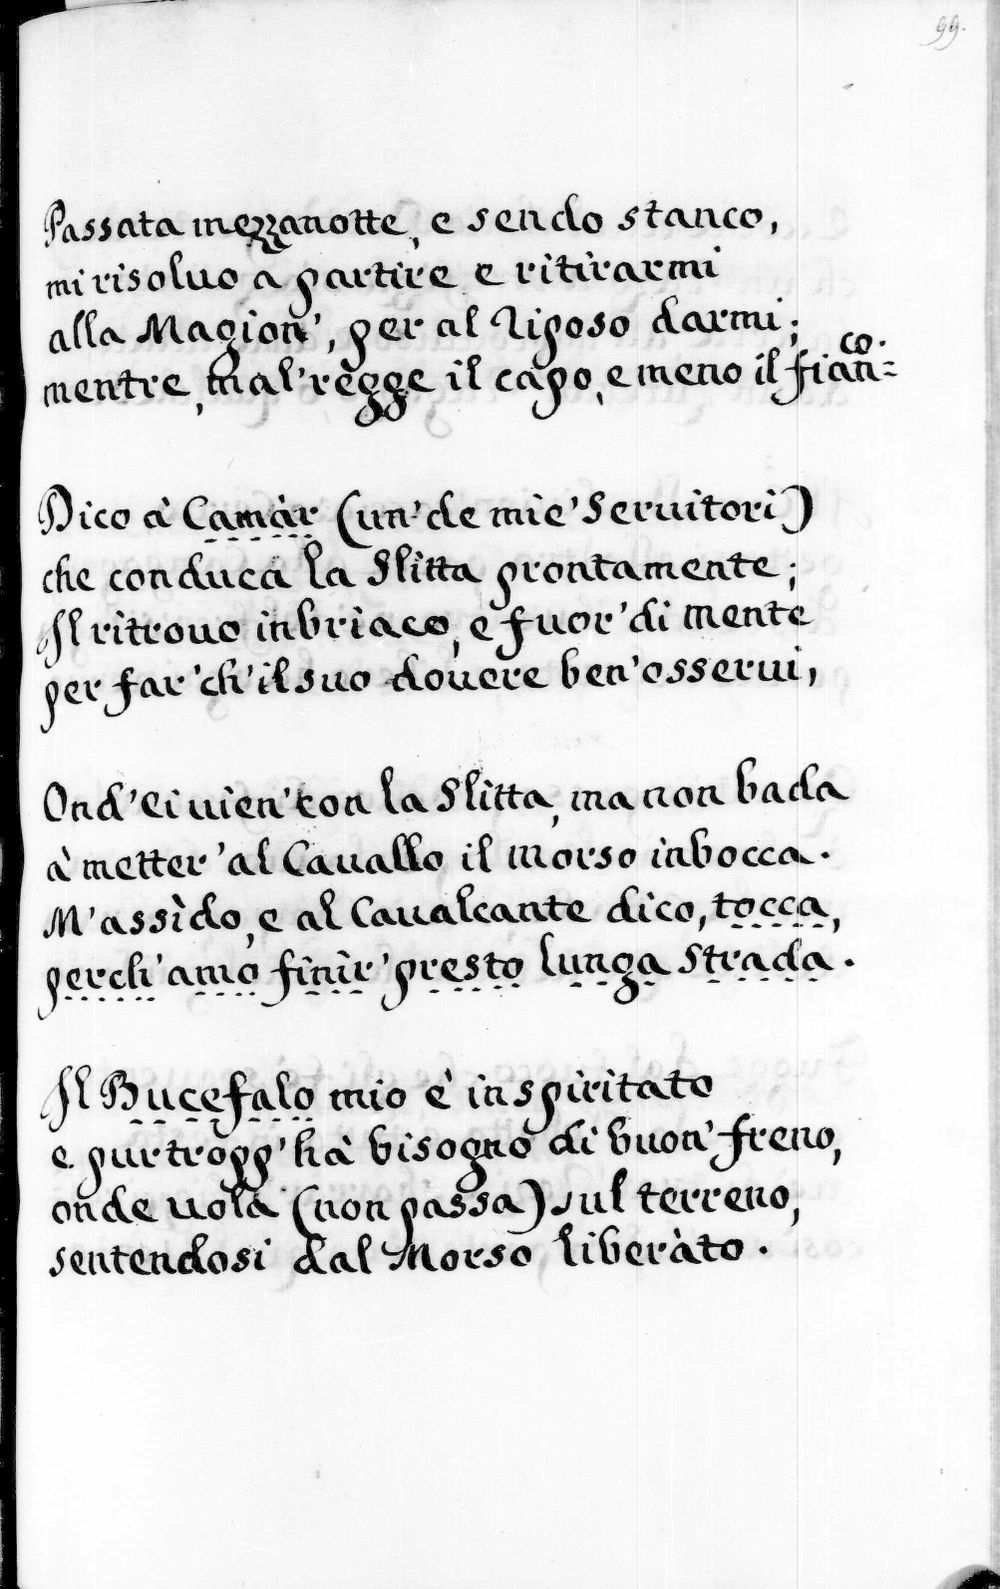 99.
Passata mezzanotte, e sendo stanco,
mi risoluo a partire e ritirarmi
alla Magion', per al Riposo darmi;
mentre, mal' règge il capo, e meno il fian=co.
Dico à Camàr (un' de mie' Seruitori)
che conduca la Slitta prontamente;
Il ritrouo inbrìaco, e fuor' di mente
per far' ch' il suo douere ben' osserui,
Ond' ei uien' con la Slitta, ma non bada
à metter' al Cauallo il morso inbocca.
M' assìdo, e al Caualcante dico, tocca,
perch' amo finìr' presto lunga Strada.
Il Bucefalo mio è inspiritato
e purtropp' hà bisogno di buon' freno,
onde uola (non passa) sul terreno,
sentendosi dal Morso liberàto.